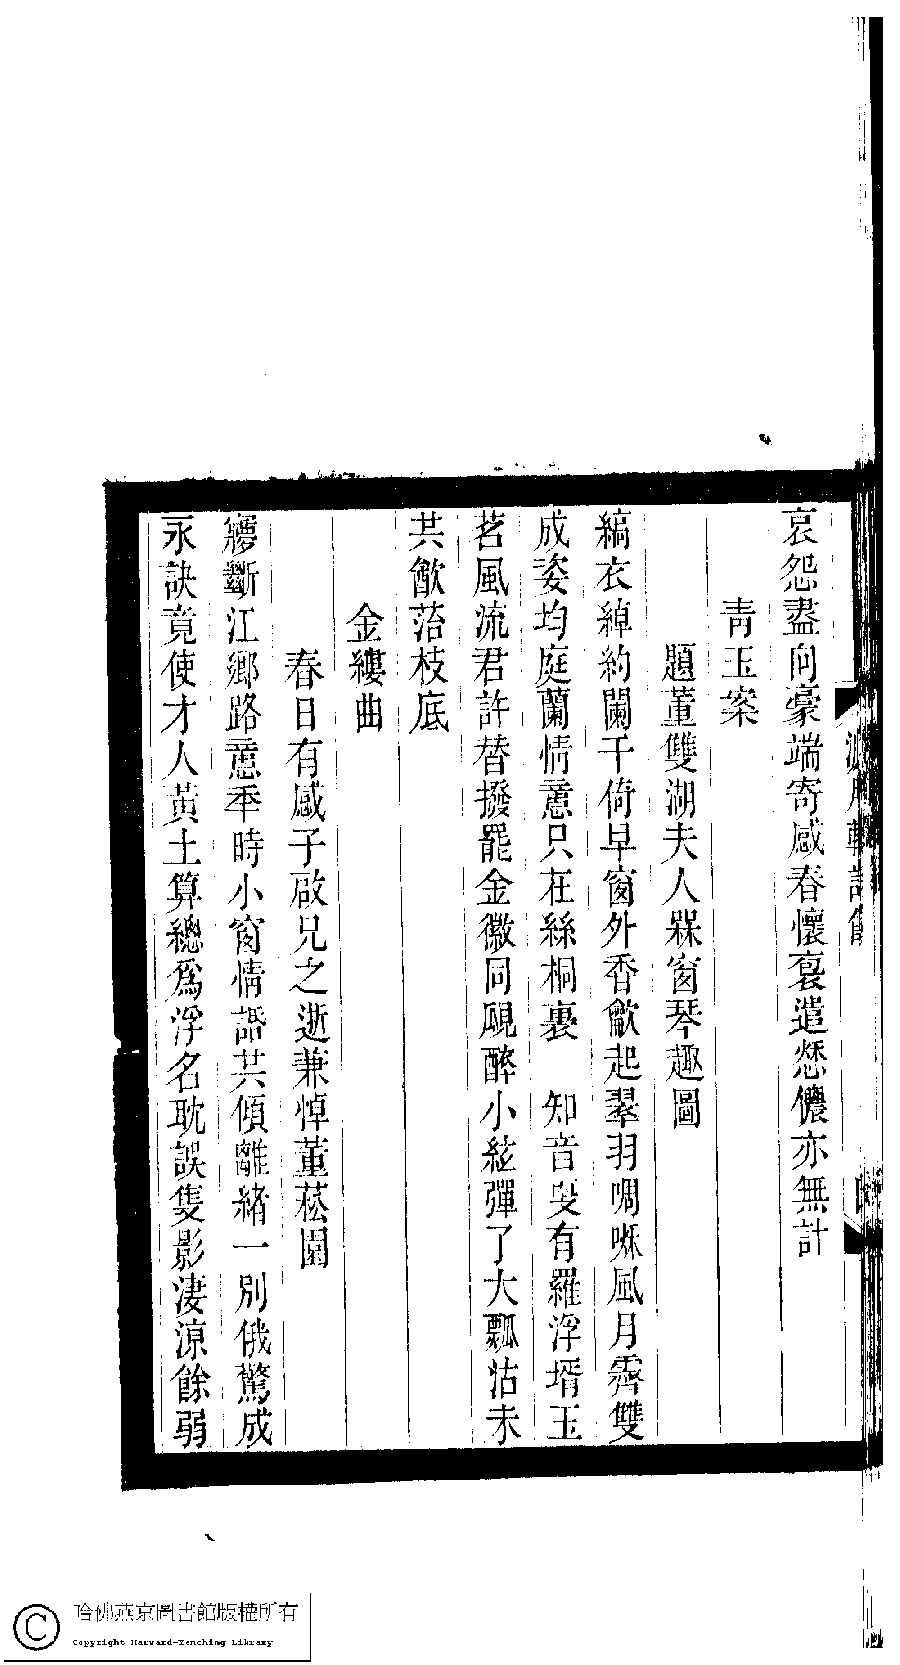 哀怨盡向豪端寄感春懷袌遣愁儂亦無計
青玉案
題董雙湖夫人槑窗琴趣圖
縞衣綽約闌干倚早窗外香歕起翠羽啁啾風月霽雙
成姿均庭蘭情意只在絲桐裏　知音叟有羅浮壻玉
茗風流君許替撥罷金徽同覕醉小絃彈了大瓢沽未
共㱃萿枝底
金縷曲
春日有感子啟兄之逝兼悼董菘園
㝱斷江鄉路憶秊時小窗情語共傾離緒一別俄驚成
永訣竟使才人黃土算總爲浮名耽誤隻影淒涼餘弱
哈佛燕京圖書館版權所有
Copyright Harvard-Yenching Library